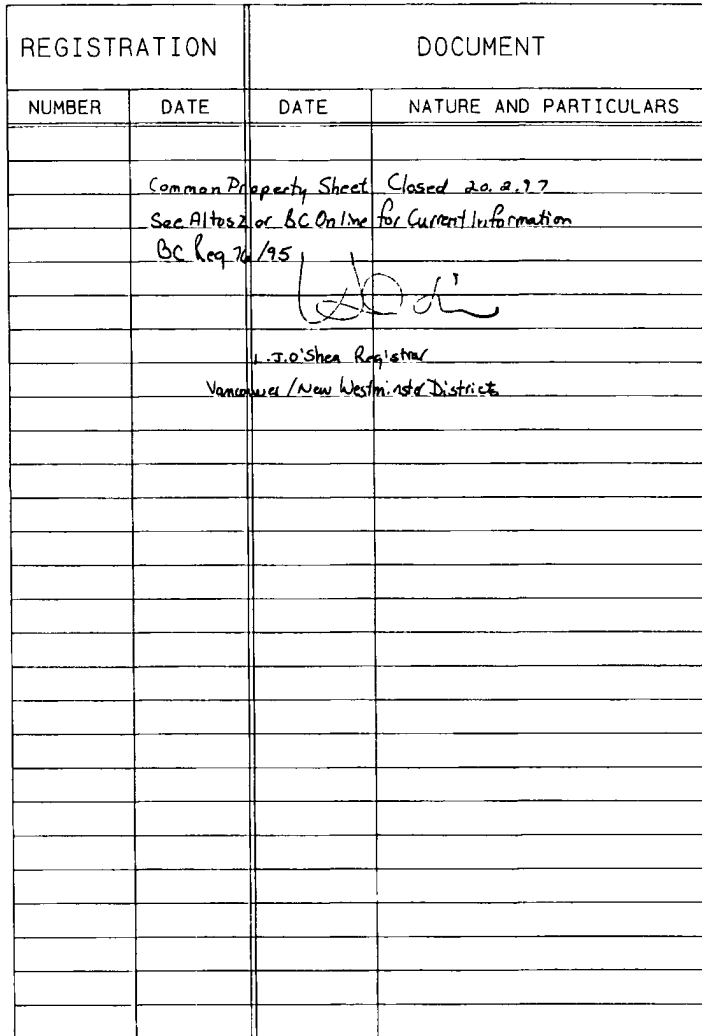 REGISTRATION DOCUMENT
NUMBER DATE DATE NATURE AND PARTICULARS
Common Property Sheet Closed 20.2.97
See Altos2 or BC Online for Current Information
BC Reg 76/95
L.J.O'Shea Registrar
Vancouver/New Westminster Districts